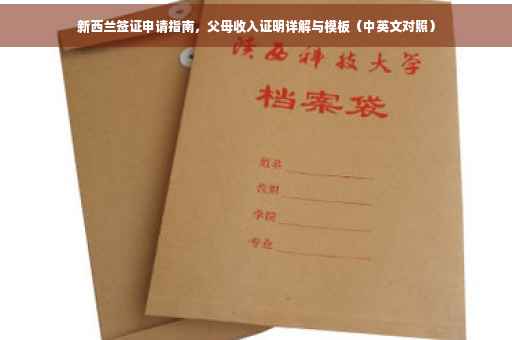 新西兰签证申请指南，父母收入证明详解与模板（中英文对照）
陕西科技大学
档案袋
姓名
性别
学院
专业